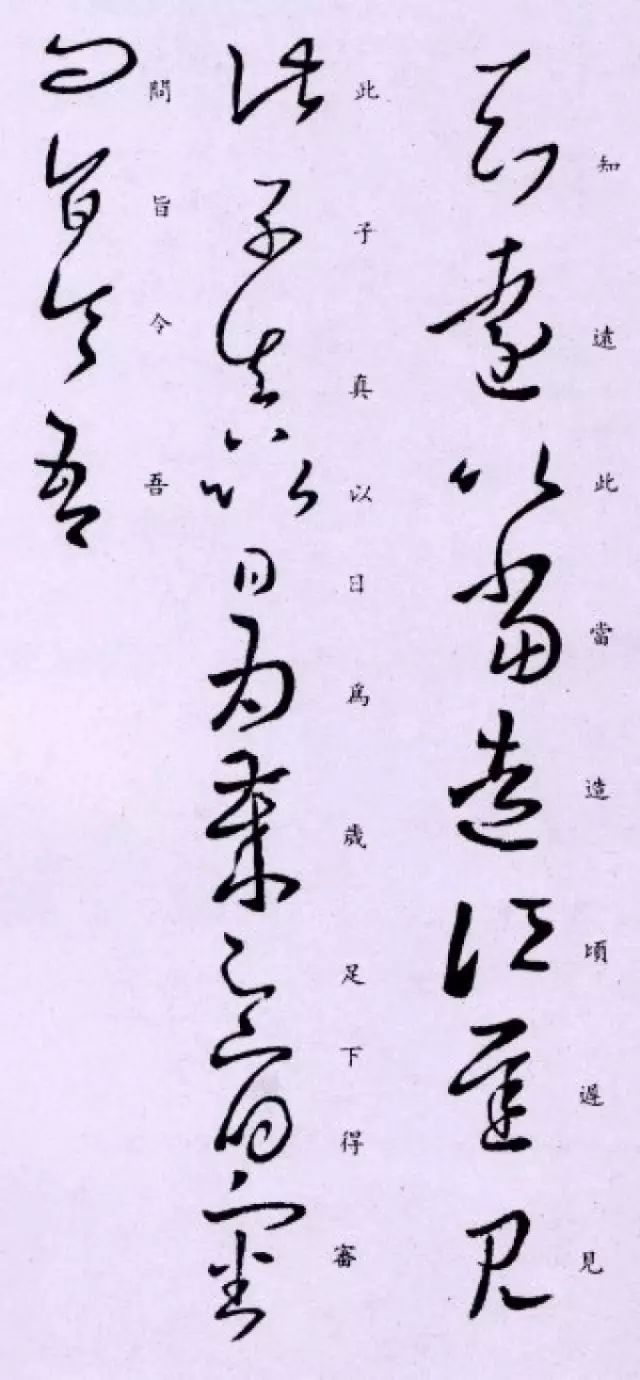 知遠此當造頃遲見
此子真以日爲歲足下得審
問旨令吾